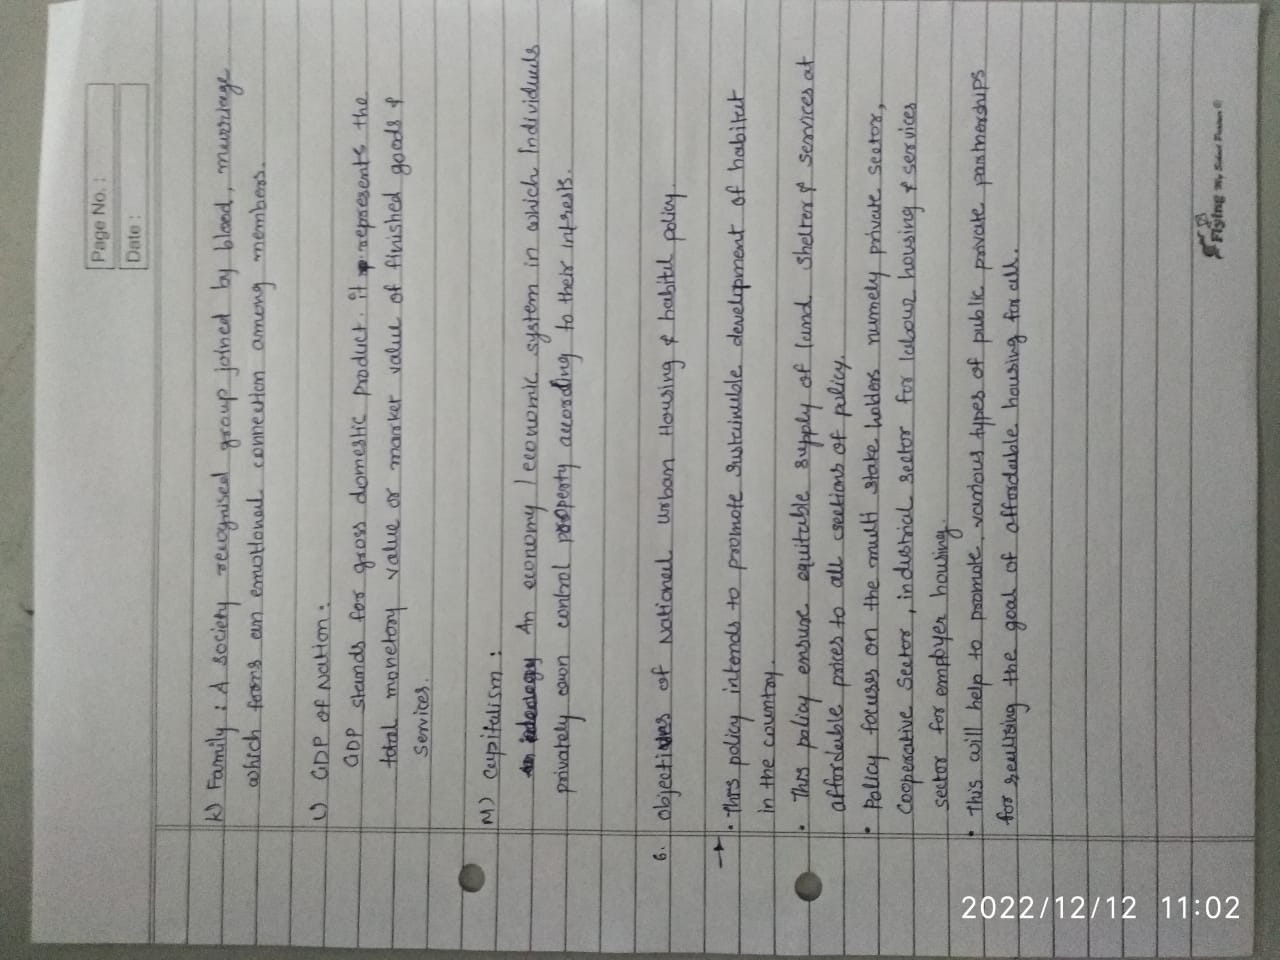 Page No. :
Date :
K) Family : A society recognised group joined by blood, marriage
which forms an emotional connection among members.
L) GDP of Nation :
GDP stands for gross domestic product. it represents the
total monetory value or market value of finished goods &
Services.
M) Capitalism :
An ideology An economy / economic system in which Individuals
privately own control property according to their intrests.
6. Objectives of National Urban Housing & habitat policy.
→
• This policy intends to promote sustainable development of habitat
in the country.
• This policy ensure equitable supply of land shelter & services at
affordable prices to all sections of policy.
• Policy focuses on the multi stake holders namely private sector,
Cooperative Sector, industrial sector for labour housing & services
sector for employer housing.
• This will help to promote various types of public private partnerships
for realising the goal of affordable housing for all.
2022/12/12 11:02
Flying